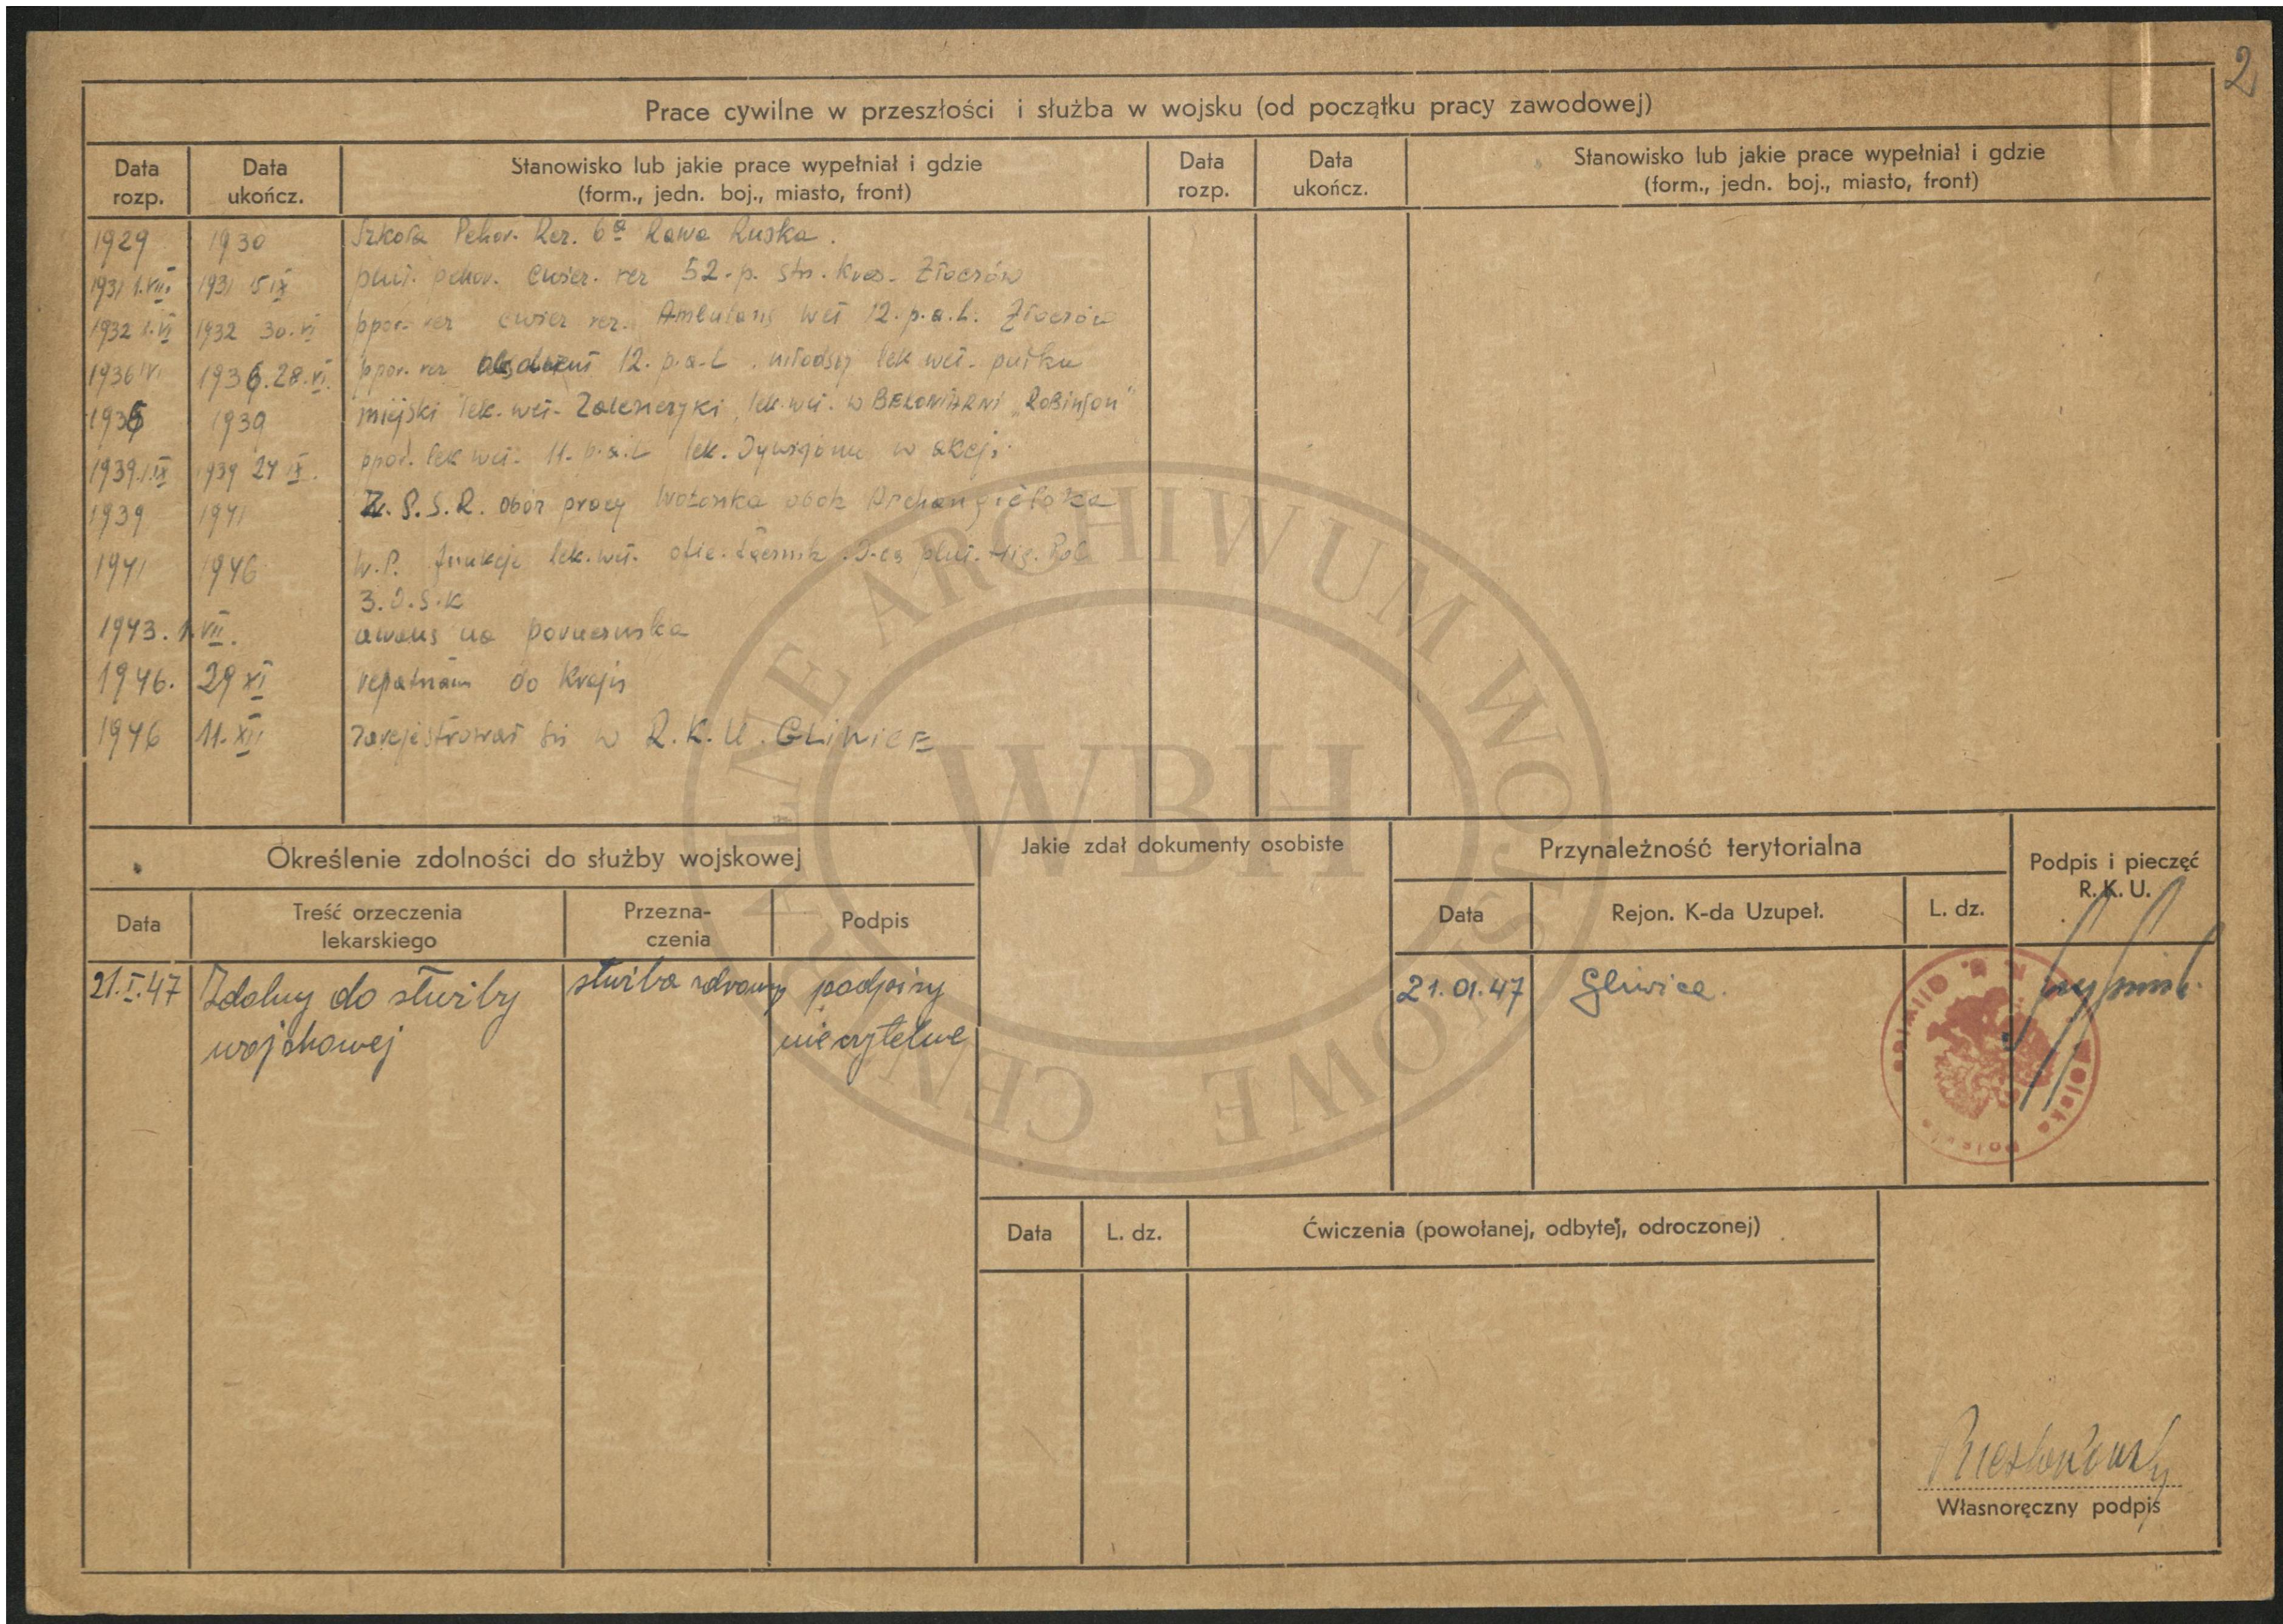 2
Prace cywilne w przeszłości i służba w wojsku (od początku pracy zawodowej)
Data rozp.
Data ukończ.
Stanowisko lub jakie prace wypełniał i gdzie
(form., jedn. boj., miasto, front)
Data rozp.
Data ukończ.
Stanowisko lub jakie prace wypełniał i gdzie
(form., jedn. boj., miasto, front)
1929 1930 Szkoła Pchor. Rez. 6a Rawa Ruska.
1931 1.VIII 1931 15 IX plut. pchor. ćwicz. rez 52. p. str. kres. Złoczów
1932 1.VI 1932 30.VI ppor. rez ćwicz rez. Ambulans wet 12. p.a.l. Złoczów
1936 1 VI 1936.28.VI. ppor. rez 12. p.a.l. młodszy lek wet. pułku
1936 1939 miejski lek. wet. Zaleszczyki, lek. wet. w BEKONIARNI "ROBINSON"
1939.1.IX 1939 24 IX. ppor. lek wet. 11. p.a.l lek. Dywizjonu w akcji.
1939 1941 Z.S.S.R. obóz pracy obok Archangielska
1941 1946 W.P. funkcje lek. wet. plut. Hig. Pol.
3.D.S.K
1943. 1.VII. awans na porucznika
1946. 29 XI do Kraju
1946 11.XII zarejestrował się w R.K.U. GLIWICE
Określenie zdolności do służby wojskowej
Jakie zdał dokumenty osobiste
Przynależność terytorialna
Podpis i pieczęć
R.K.U.
Data
Treść orzeczenia
lekarskiego
Przezna-
czenia
Podpis
Data
Rejon. K-da Uzupeł.
L. dz.
21.I.47 Zdolny do służby służba zdrowia podpisy
wojskowej nieczytelne
21.01.47 Gliwice.
Data
L. dz.
Ćwiczenia (powołanej, odbytej, odroczonej)
Własnoręczny podpis
CENTRALNE ARCHIWUM WOJSKOWE
WBH